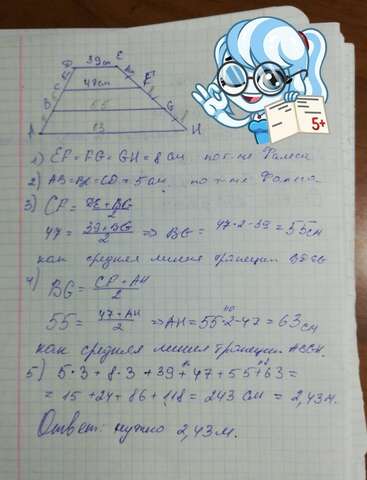 39см E
D
8
F
47см
B
55
G
A 63 H
5+
1) EF = FG = GH = 8 см по т-ме Фалеса
2) AB=BC=CD = 5 см. по т-ме Фалеса
3) CF = DE + BG / 2
47 = 39+BG / 2 => BG = 47·2-39 = 55см
как средняя линия трапеции
4) BG = CF + AH / 2
55 = 47+AH / 2 => AH = 55·2-47 = 63см
как средняя линия трапеции ACFH.
5) 5·3 + 8·3 + 39 + 47 + 55+63 =
= 15 +24+ 86 + 118 = 243 см = 2,43м.
Ответ: нужно 2,43м.